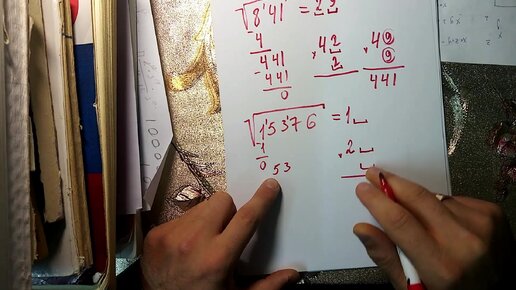 √8'41 = 29
-4
441
-441
0
,42_
2
,49
9
441
√1'53'76 = 1_
-1
0 53
,2_
_
1000